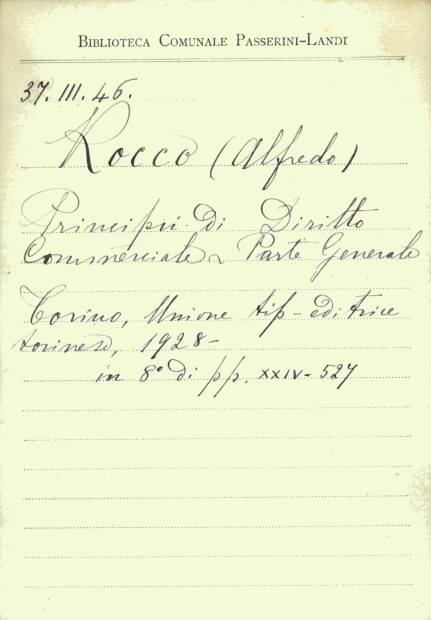 BIBLIOTECA COMUNALE PASSERINI-LANDI
37. III. 46.
Rocco (Alfredo)
Principii di Diritto
Commerciale - Parte Generale
Torino, Unione tip-editrice
torinese, 1928-
in 8° di pp. XXIV-527